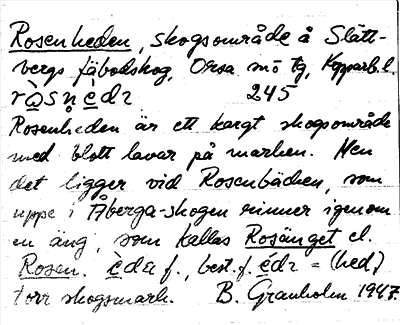 Rosenheden, skogsområde å Slätt-
bergs fäbodskog, Orsa sn tg, Kopparb. l.
245
Rosenheden är ett kargt skogsområde
med blott lavar på marken. Men
det ligger vid Rosenbäcken, som
uppe i Åberga-skogen rinner igenom
en äng, som kallas Rosänget el.
Rosen. èda f., best. f. édr = (hed,)
torr skogsmark. B. Granholm 1947.